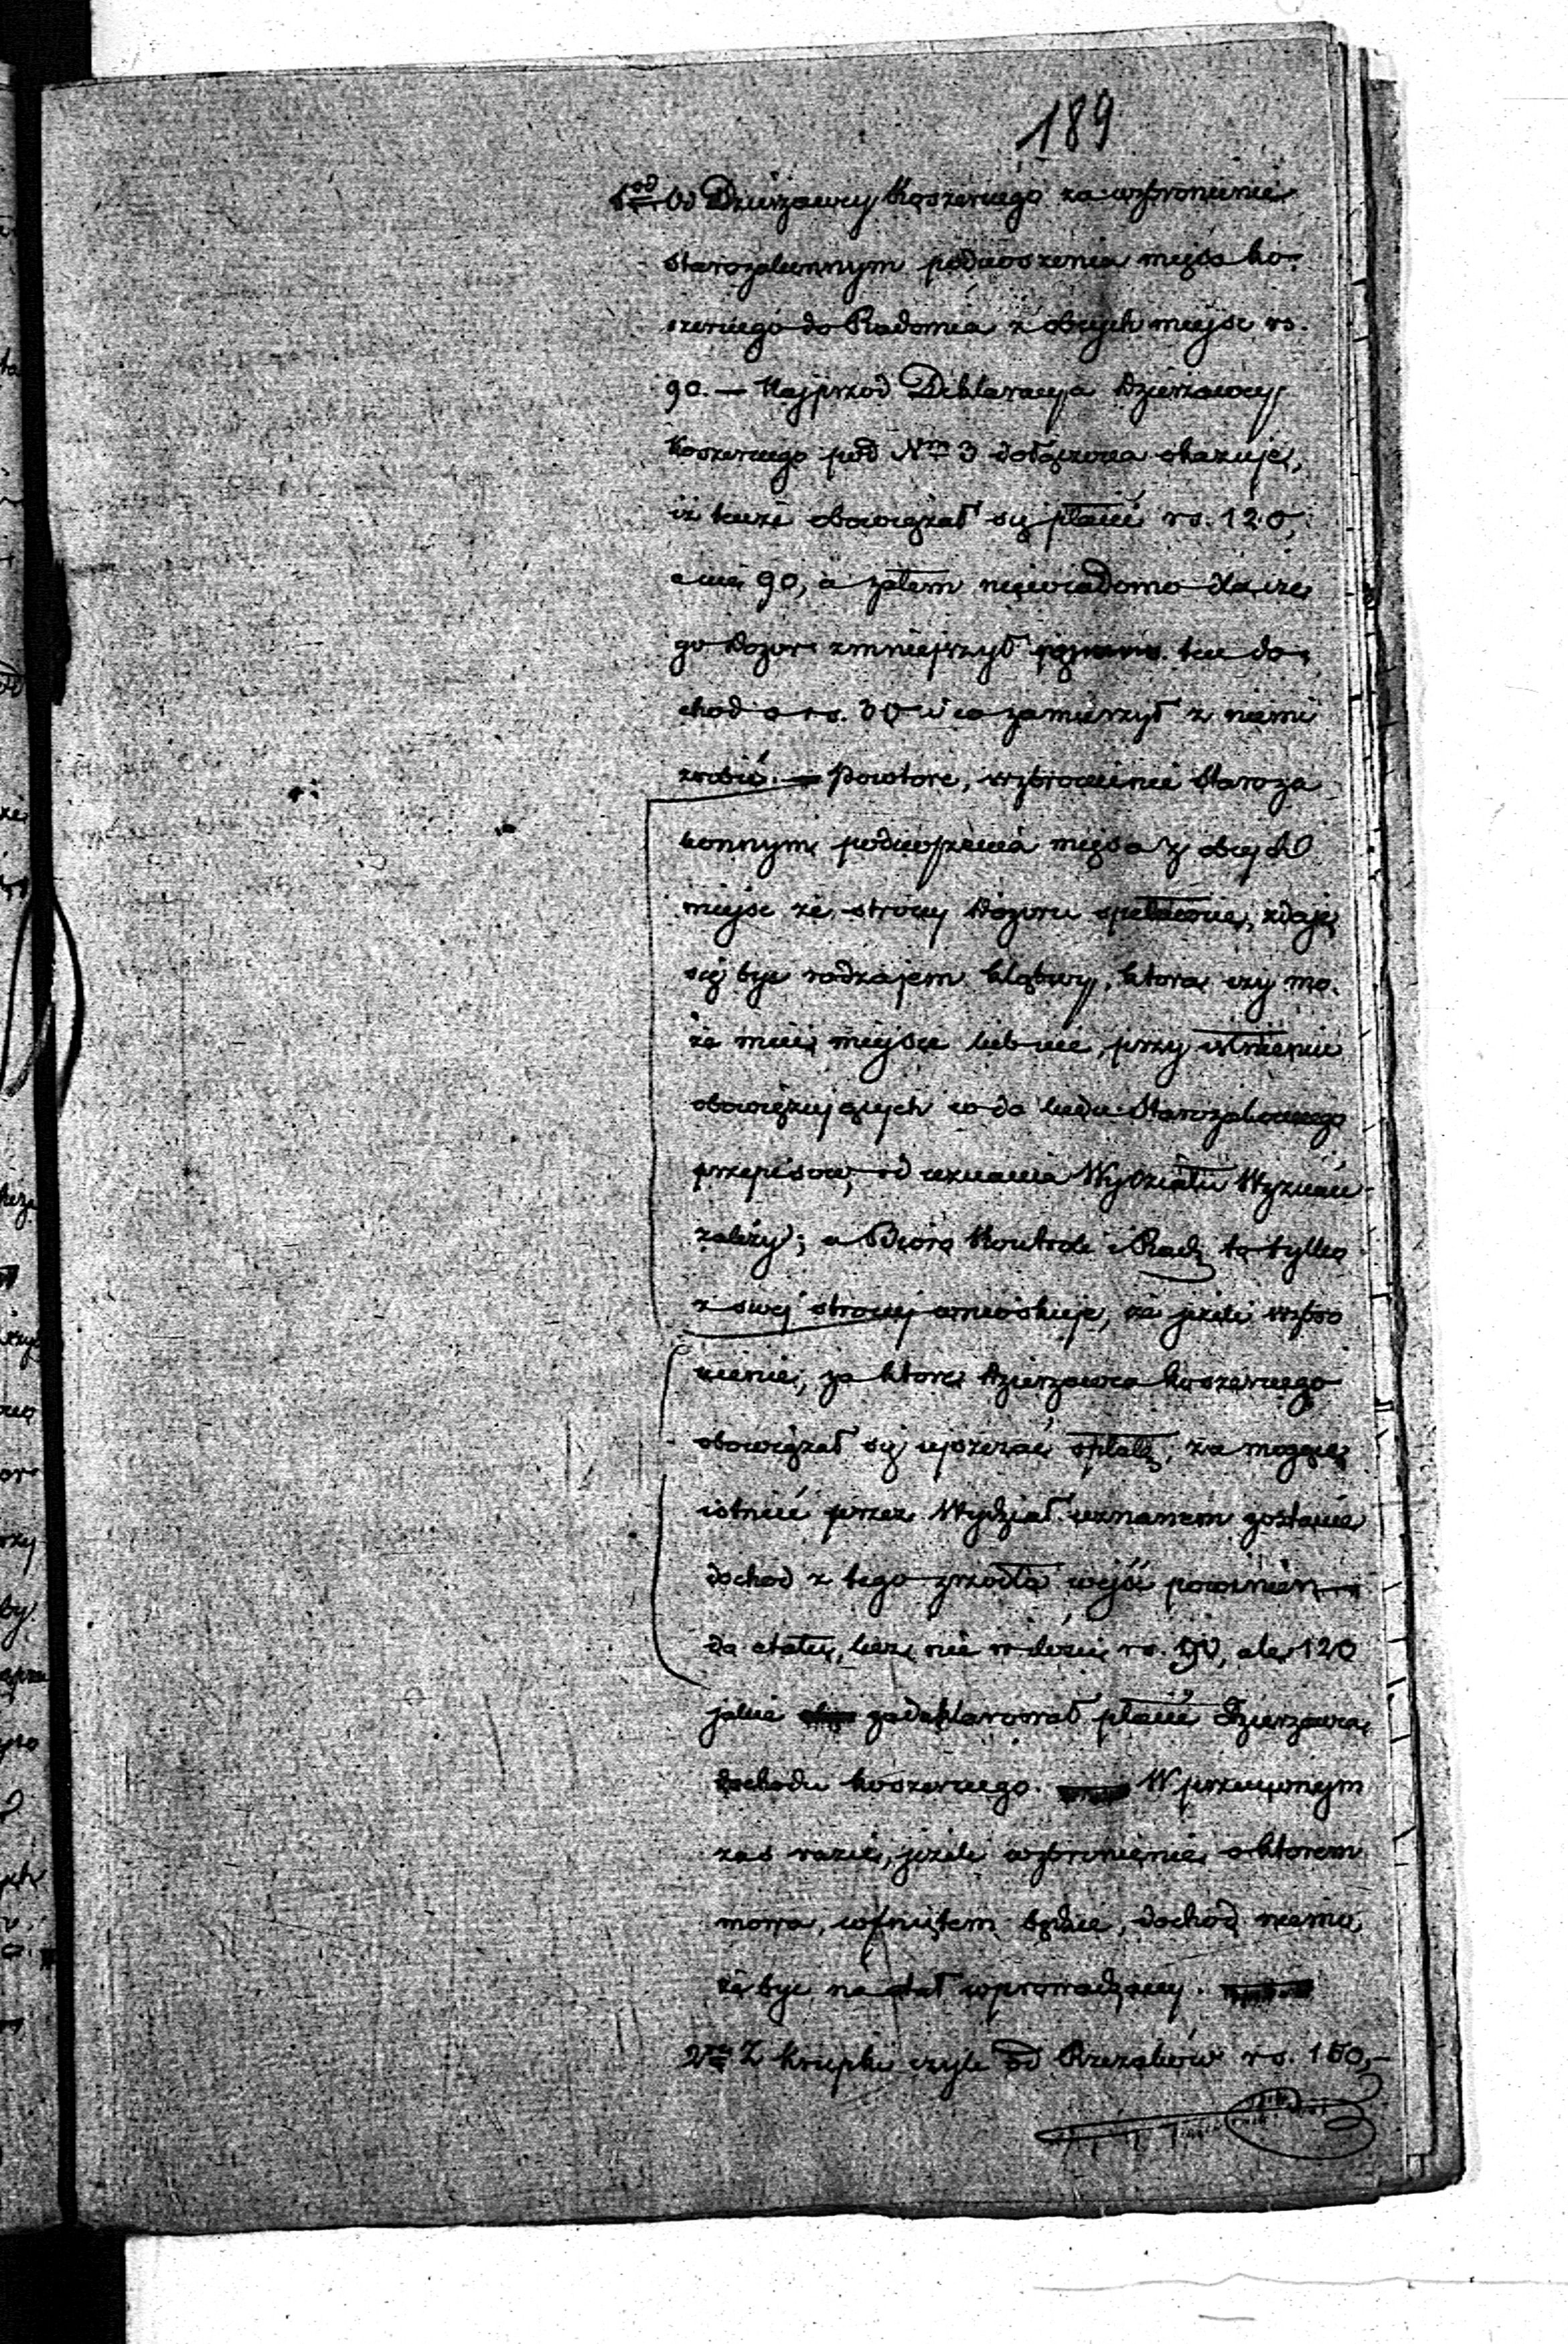 189
1od Od Dzierzawcy Koszernego za wzbronienie
Starozakonnym podwoszenia mięsa ko-
szernego do Radomia z obcych miejsc rs.
90. — Najprzod Deklaracyja Dzierzawcy
Koszernego pod Nrm 3 dołączona okazuje,
iż tenże obowiązał się płacić rs. 120,
a nie 90, a zatem niewiadomo dla cze
go Dozor zmniejszył ten do
chod o rs. 30 i co zamierzył z niemi
zrobić. — Powtore, wzbronienie Staroza
konnym podwoszenia mięsa z obcych
miejsc ze strony Dozoru, zdaje
się byc rodzajem klątwy, ktora czy mo
że mieć miejsce lub nie, przy istnieniu
obowiązujących co do ludu Starozakonnego
przepisow, od uznania Wydziału Wyznań
zależy; a Biuro Kontroli i Rach. to tylko
z swej strony wnioskuje, że jeżeli wzbro
nienie, za ktore Dzierzawca koszernego
obowiązał się uiszczać opłatę, za mogące
istnieć przez Wydział uznanem zostanie
dochod z tego zrzodła wejść powinien
do etatu, lecz nie w ilości rs. 90, ale 120
jakie zadeklarował płacić Dzierzawca
dochodu koszernego. W przeciwnym
zas razie, jeżeli wzbronienie o ktorem
mowa, cofniętem będzie, dochod niemo
że byc na etat wprowadzony.
2re Z Krupki czyli od Rzezaków rs. 150,—